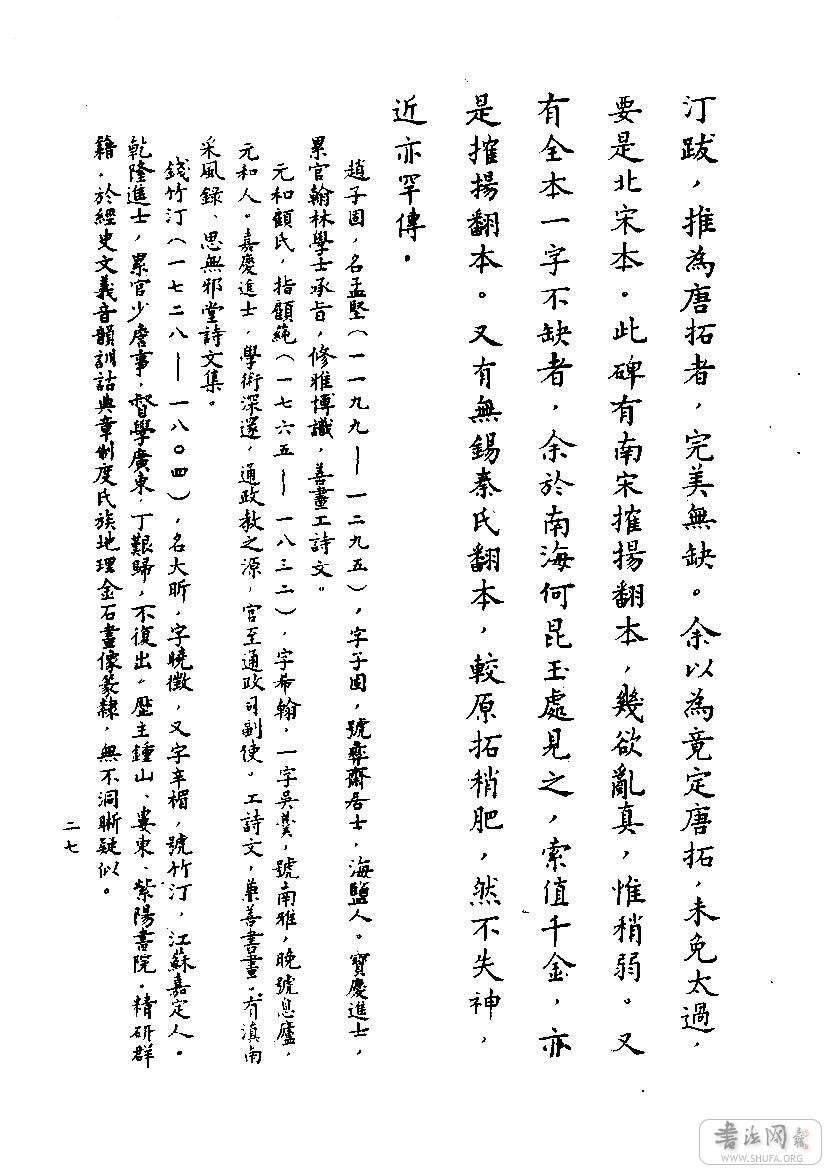 汀跋，推為唐拓者，完美無缺。余以為竟定唐拓，未免太過，
要是北宋本。此碑有南宋搉揚翻本，幾欲亂真，惟稍弱。又
有全本一字不缺者，余於南海何昆玉處見之，索值千金，亦
是搉揚翻本。又有無錫秦氏翻本，較原拓稍肥，然不失神，
近亦罕傳。
趙子固，名孟堅（一一九九——一二九五），字子固，號彝齋居士，海鹽人。寶慶進士，
累官翰林學士承旨，修雅博識，善畫工詩文。
元和顧氏，指顧蒓（一七六五——一八三二），字希翰，一字吳羹，號南雅，晚號息廬，
元和人。嘉慶進士，學術深邃，通政教之源，官至通政司副使。工詩文，兼善書畫。有滇南
采風録、思無邪堂詩文集。
錢竹汀（一七二八——一八〇四），名大昕，字曉徵，又字辛楣，號竹汀，江蘇嘉定人。
乾隆進士，累官少詹事，督學廣東，丁艱歸，不復出。歷主鍾山、婁東、紫陽書院。精研群
籍，於經史文義音韻訓詁典章制度氏族地理金石畫像篆隸，無不洞晰疑似。
二七
書法网
WWW.SHUFA.ORG